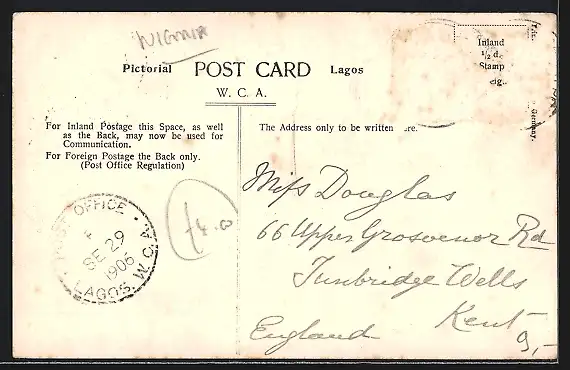 Pictorial POST CARD Lagos
W. C. A.
Inland
½ d.
Stamp
For Inland Postage this Space, as well
as the Back, may now be used for
Communication.
For Foreign Postage the Back only.
(Post Office Regulation)
The Address only to be written
Germany.
POST OFFICE
SE 29
1906
LAGOS, W.C.A.
£4.00
Miss Douglas
66 Upper Grosvenor Rd
Tunbridge Wells
Kent
England
9,-